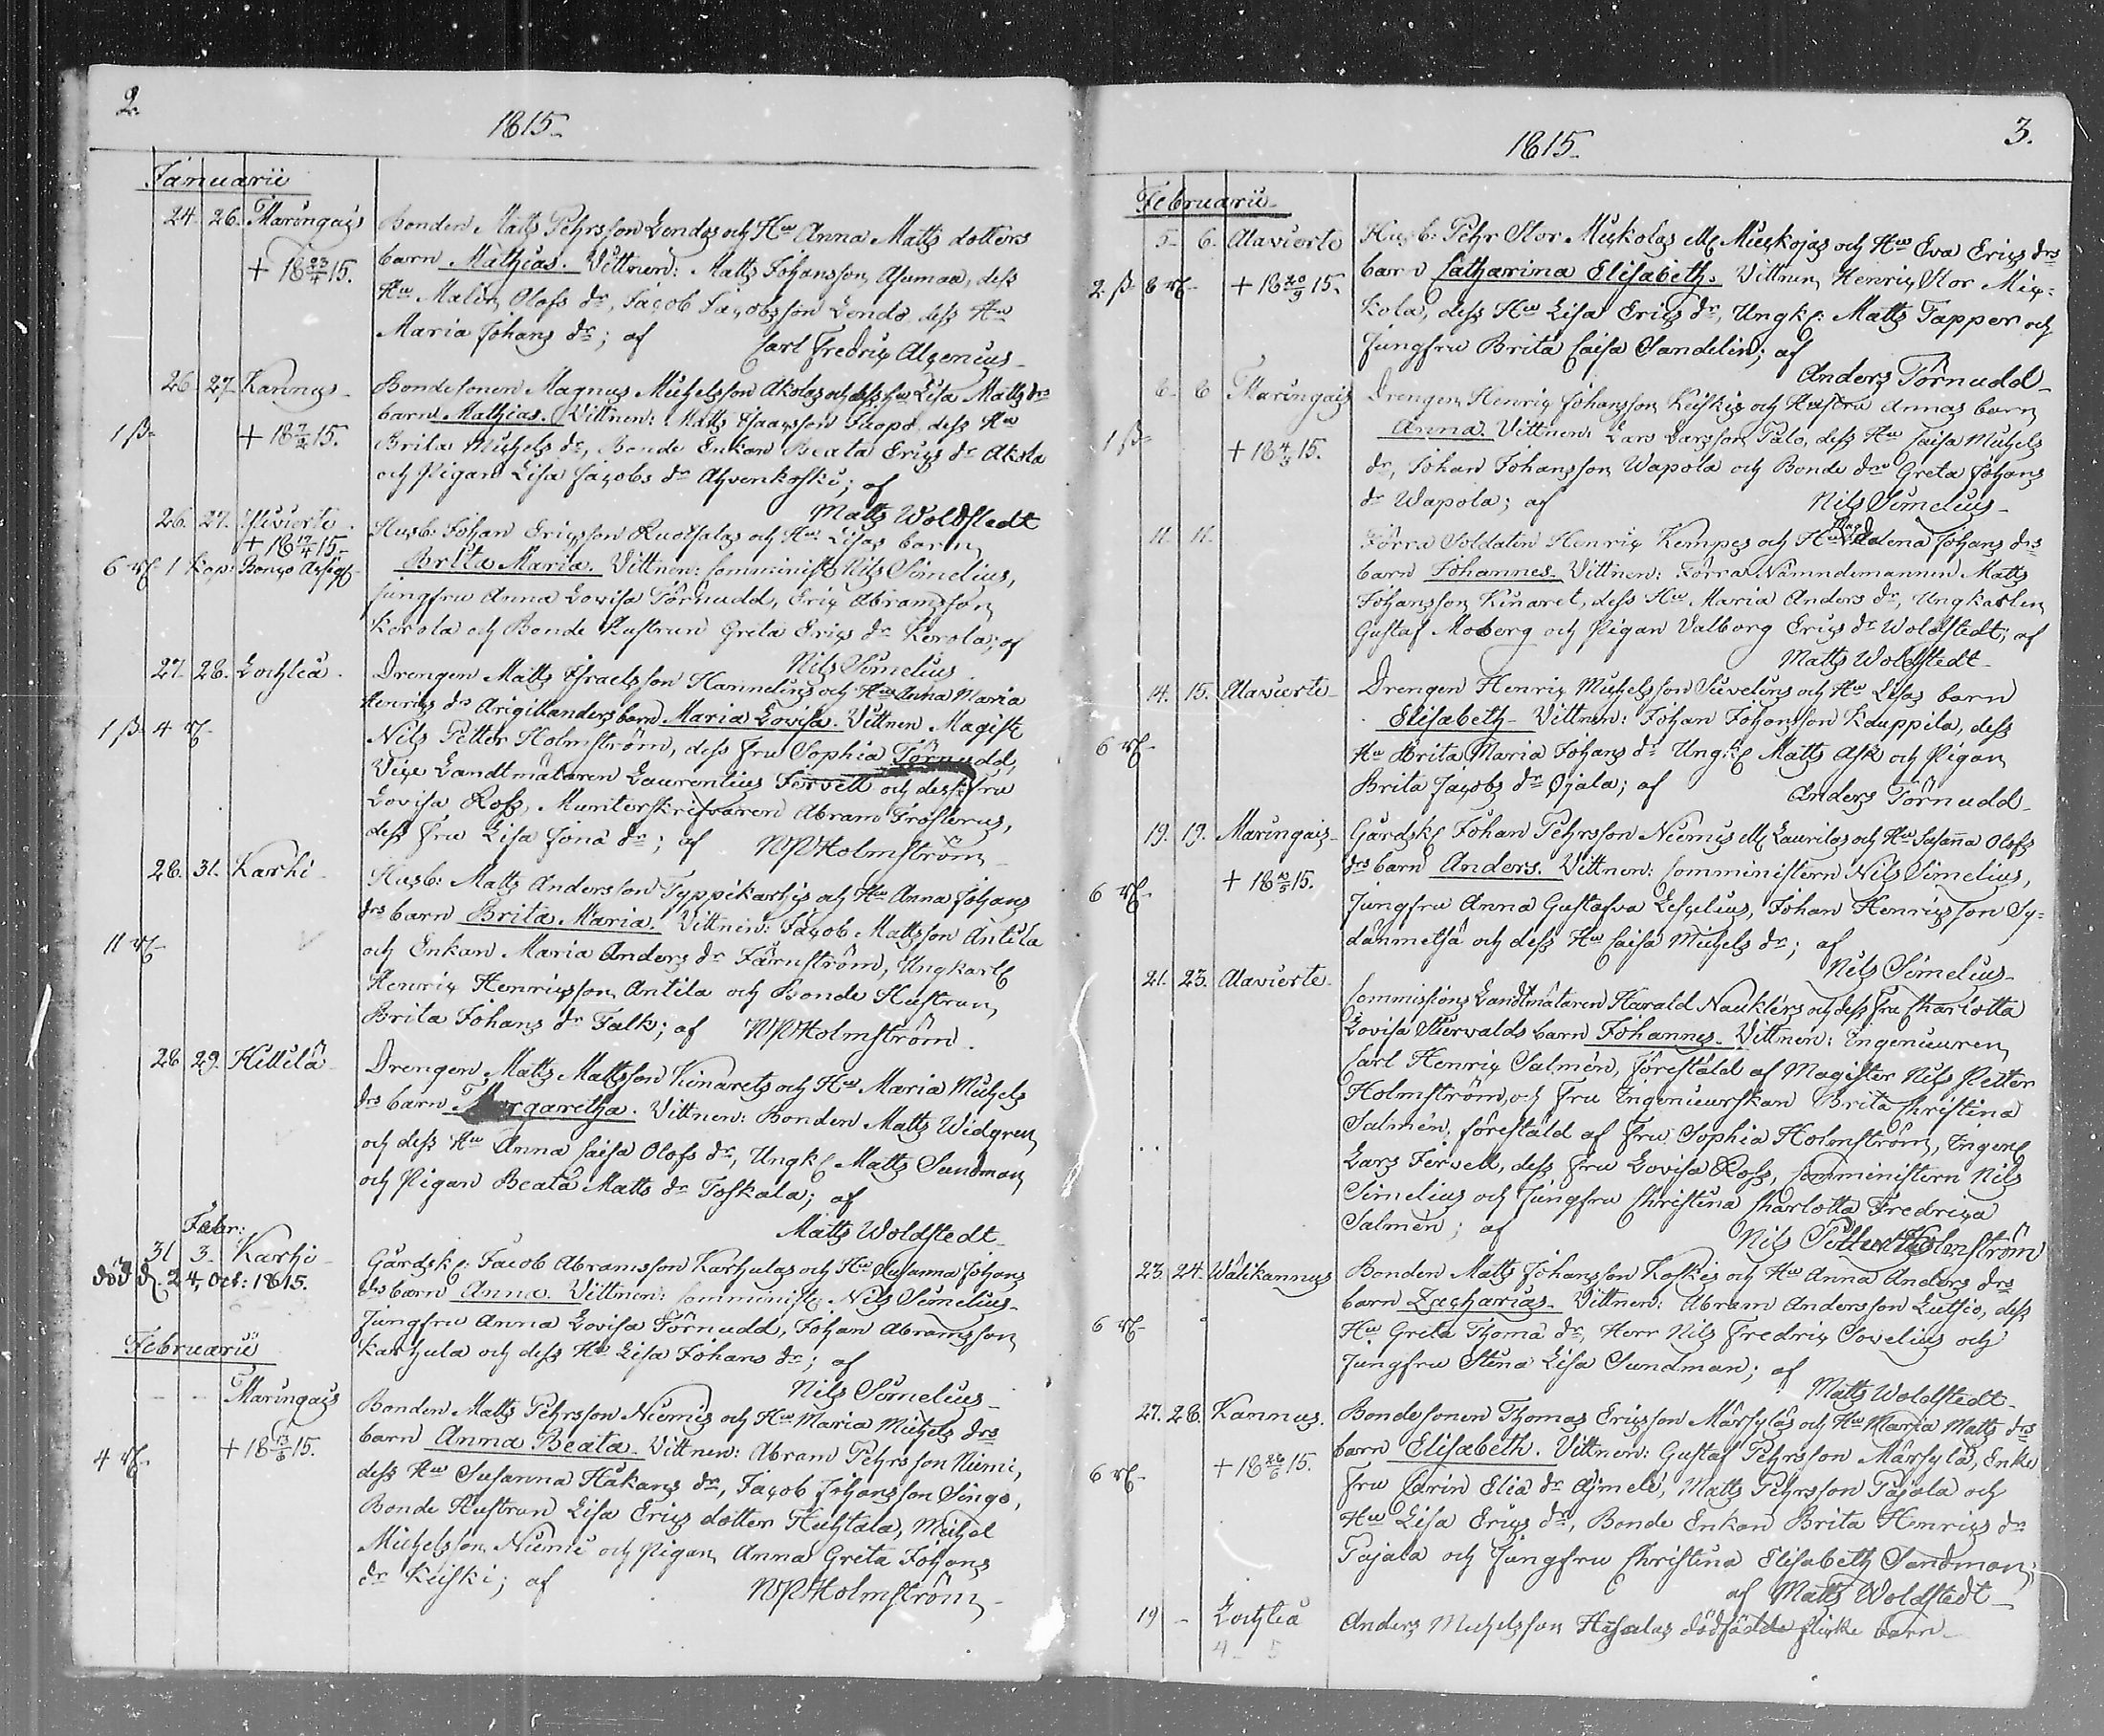 2.
1815.
Januarii
24. 26. Maringais Bonden Matts Pehrsson Londos och Hu Anna Matts dotters
+ 18 23/4 15. barn Mathias. Vittnen: Matts Johansson Asumaa, dess
Hu Malin Olofs dr, Jacob Jacobsson Londo dess Hu
Maria Johans dr; af Carl Fredric Alcenius
26. 27. Kannus Bondesonen Magnus Michelsson Akolas och dess hu Lisa Matts drs
barn Mathias. Vittnen: Matts Isaacsson dess Hu
1 ß + 18 15. Brita Michels dr, Bonde Enkan Beata Erics dr Akola
och Pigan Lisa Jacobs dr Ahvenkoski; af
Matts Woldstedt
26. 27. Ylivierto Husb: Johan Ericsson Ruotsalas och Hu Lisas barn
+ 18 15
6 rß 1 kop: Banco Assign Brita Maria. Vittnen: Comminist Nils Simelius,
Jungfru Anna Lovisa Törnudd, Eric Abramsson
Korola och Bonde Hustrun Greta Erics dr Korola; af
Nils Simelius
27. 28. Lochteå Drengen Matts Israelsson Hannelins och Hu Anna Maria
Henrics dr Arigillanders barn Maria Lovisa. Vittnen Magist
1 ß 4 rß Nils Petter Holmström, dess fru Sophia Törnudd,
Vice Landtmätaren Laurentius Forsell och dess fru
Lovisa Ross, Munsterskrifvaren Abram Frosterus,
dess fru Lisa Jona dr; af NPHolmström
28. 31. Karhi Husb: Matts Andersson Typpikarhis och Hu Anna Johans
drs barn Brita Maria. Vittnen: Jacob Mattsson Antila
11 rß och Enkan Maria Anders dr Färnström, Ungkarl
Henric Henricsson Antila och Bonde Hustrun
Brita Johans dr Falk; af NPHolmström.
28 29. Hillilä Drengen Matts Mattsson Kinarets och Hu Maria Michels
drs barn Margaretha. Vittnen: Bonden Matts Widgren
och dess Hu Anna Caisa Olofs dr, Ungk Matts Sundman
och Pigan Beata Matts dr Toskala; af
Matts Woldstedt
Febr:
31 3. Karhi Gårdsk: Jacob Abramsson Karhulas och Hu Susanna Johans
död d 24, Oct: 1815. drs barn Anna. Vittnen: Comminist Nils Simelius
Jungfru Anna Lovisa Törnudd, Johan Abramsson
Karhula och dess Hu Lisa Johans dr; af
Nils Simelius
Februarii
- - Maringais Bonden Matts Pehrsson Niemis och Hu Maria Michels drs
4 rß + 18 13/6 15. barn Anna Beata. Vittnen: Abram Pehrsson Niemi,
dess Hu Susanna Håkans dr, Jacob Johansson Singo,
Bonde Hustrun Lisa Erics dotter Huhtala, Michel
Michelsson Niemi och Pigan Anna Greta Johans
dr Keiski; af NPHolmström
3.
1815.
Februarii
5. 6. Alavierto Husb: Pehr Stor Mickolas ell Muskojas och Hu Eva Erics drs
2 ß 8 rß + 18 20/9 15. barn Catharina Elisabeth. Vittnen Henric Stor Mic-
kola, dess Hu Lisa Erics dr, Ungk: Matts Tapper och
Jungfru Brita Caisa Sandelin; af
Anders Törnudd
6. 6 Maringais Drengen Henric Johansson Keiskis och Hustru Annas barn
1 ß + 18 4/3 15. Anna. Vittnen: Lars Larsson Palo, dess Hu Caisa Michels
dr, Johan Johansson Wapola och Bonde dr Greta Johans
dr Wapola; af Nils Simelius
11. 11. Förra Soldaten Henric Kempes och Hu Magdalena Johans drs
barn Johannes. Vittnen: Förra Nämndemannen Matts
Johansson Kinaret, dess Hu Maria Anders dr, Ungkarlen
Gustaf Moberg och Pigan Valborg Erics dr Woldstedt; af
Matts Woldstedt
14. 15. Alavierto Drengen Henric Michelsson Sivelins och Hu Lisas barn
Elisabeth Vittnen: Johan Johansson Kauppila, dess
6 rß Hu Brita Maria Johans dr Ungk Matts Ask och Pigan
Brita Jacobs dr Ojala; af Anders Törnudd
19. 19. Maringais Gårdsk Johan Pehrsson Niemis ell Laurilas och Hu Susanna Olofs
6 rß + 18 15. drs barn Anders. Vittnen: Comministern Nils Simelius,
Jungfru Anna Gustafva Lescelius, Johan Henricsson Sy-
dänmetsä och dess Hu Caisa Michels dr; af
Nils Simelius
21. 23. Alavierto Commissions Landtmätaren Harald Nauklérs och dess fru Charlotta
Lovisa Stierwalds barn Johannes. Vittnen: Ingenieuren
Carl Henric Salmén, förestäld af Magister Nils Petter
Holmström, och Fru Ingenieurskan Brita Christina
Salmén, förestäld af fru Sophia Holmström, Ingen
Lars Forsell, dess fru Lovisa Ross, Comministern Nils
Simelius och Jungfru Christina Charlotta Fredrica
Salmén; af Nils Petter Holmström
23. 24. Wälikannus Bonden Matts Johansson Koskis och Hu Anna Anders drs
6 rß barn Zacharias. Vittnen: Abram Andersson Lutsio, dess
Hu Greta Thoma dr, Herr Nils Fredric Sovelius och
Jungfru Stina Lisa Sundman; af
Matts Woldstedt
27. 28. Kannus. Bondesonen Thomas Ericsson Märsyläs och Hu Maria Matts drs
6 rß + 18 26/6 15. barn Elisabeth. Vittnen: Gustaf Pehrsson Märsylä, Enke
Fru Carin Elia dr Ajmelé, Matts Pehrsson Pajala och
Hu Lisa Erics dr, Bonde Enkan Brita Henrics dr
Pajala och Jungfru Christina Elisabeth Sandman;
af Matts Woldstedt
19 - Lochteå Anders Michelsson Hasalas dödfödda flicke barn
4 5